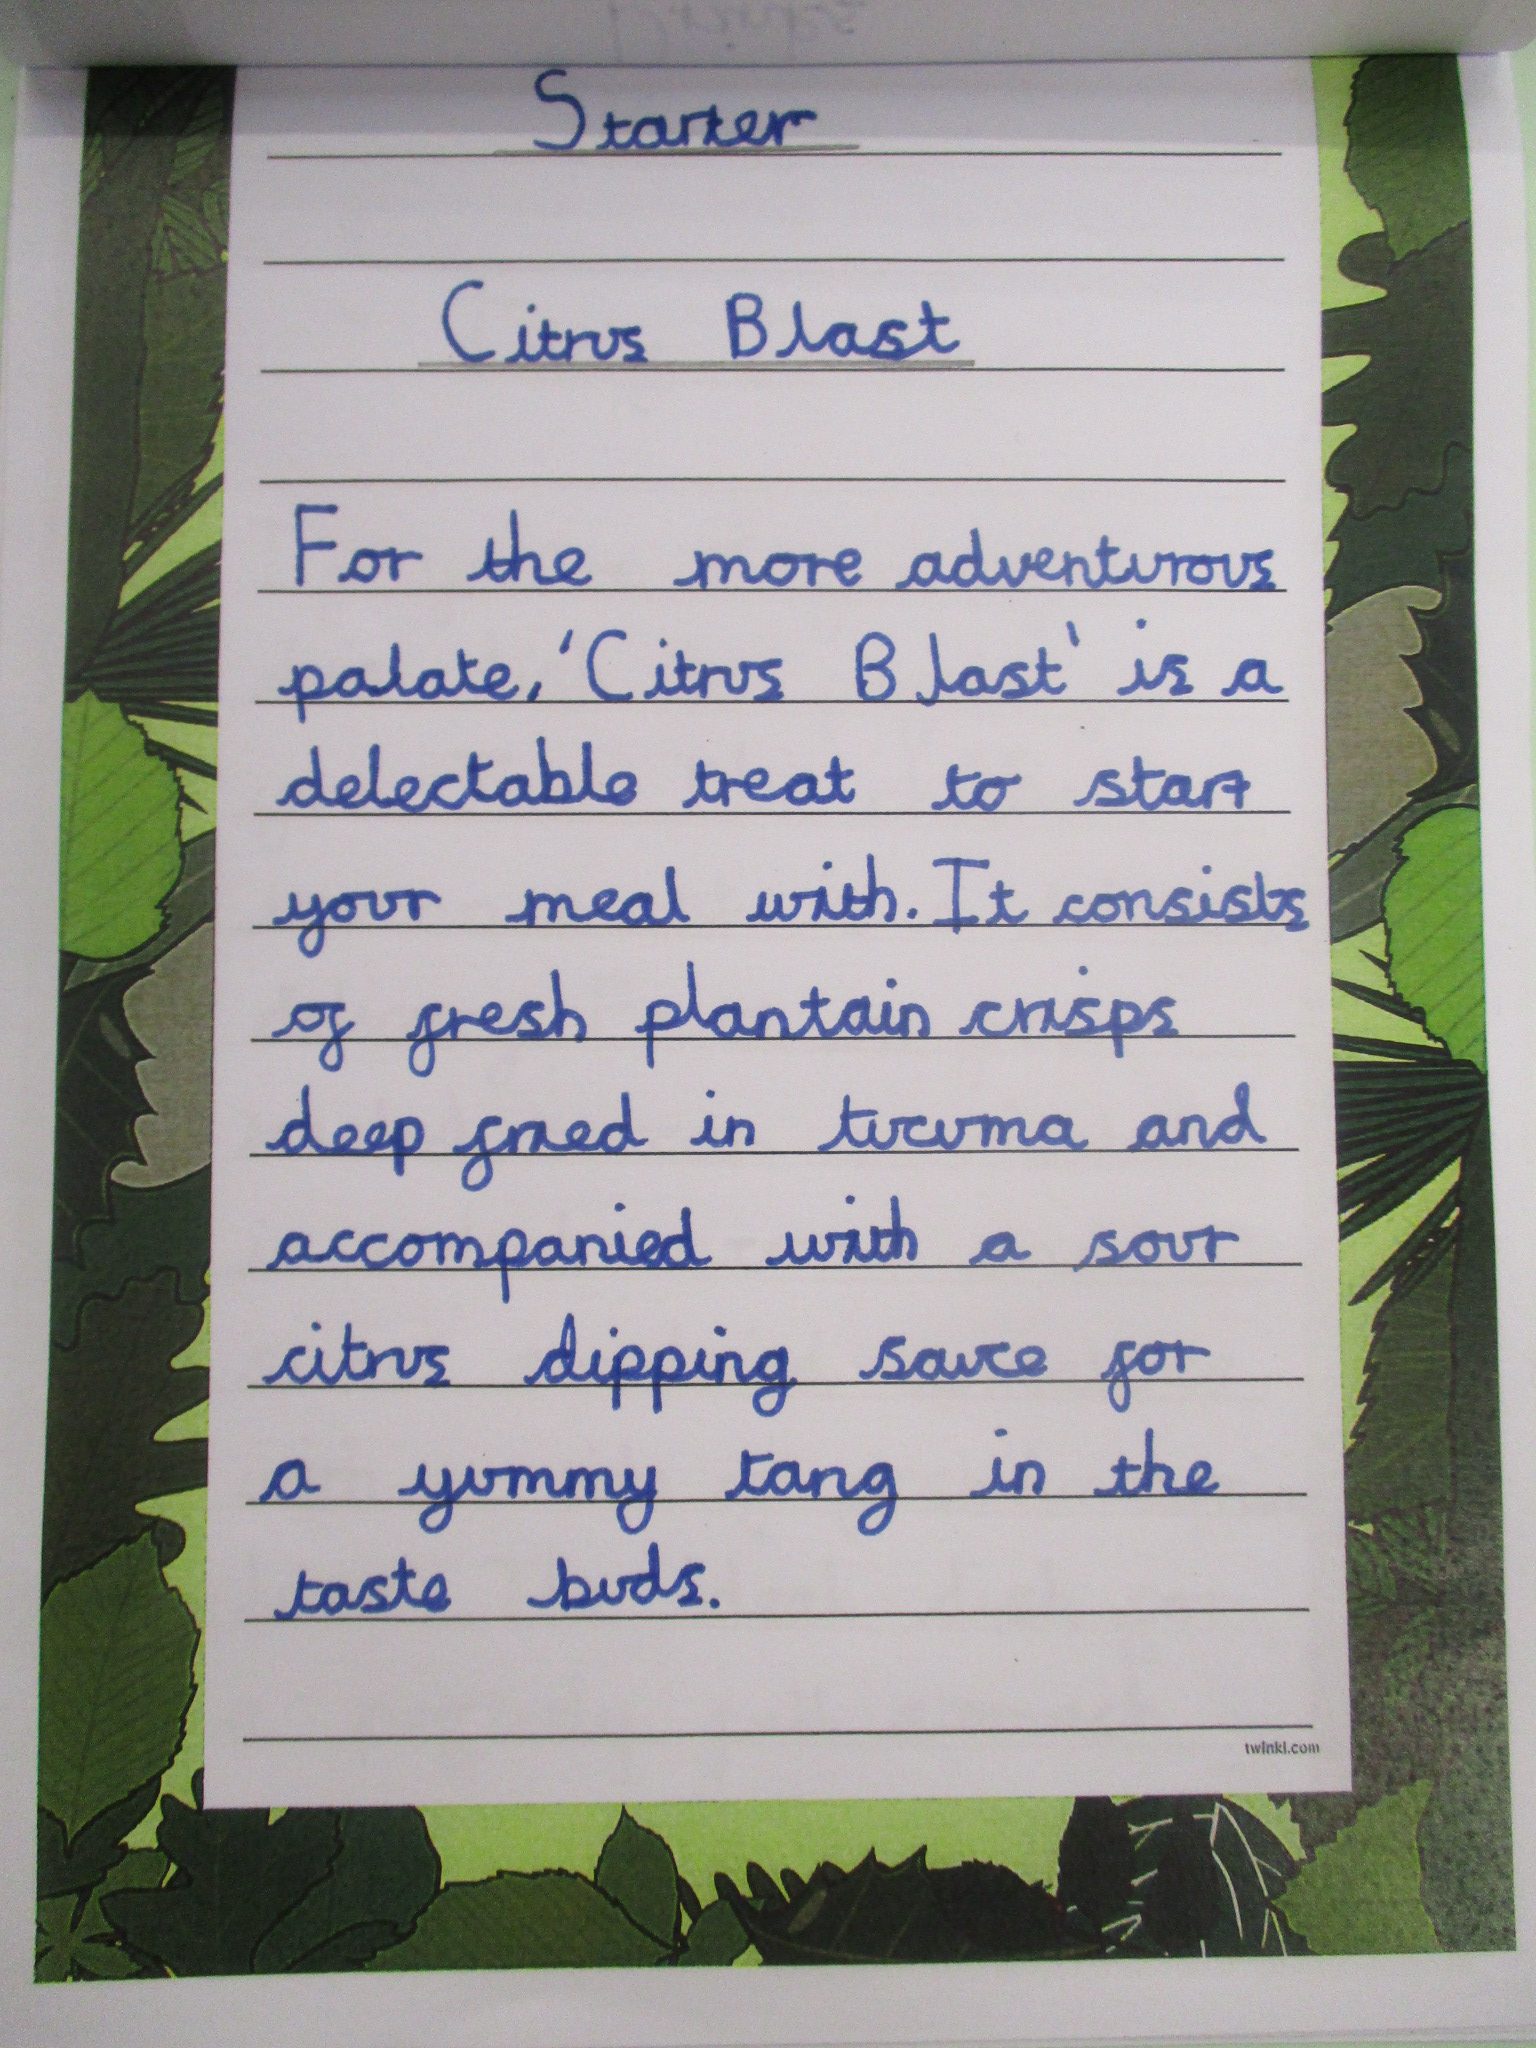 Starter
Citrus Blast
For the more adventurous
palate, 'Citrus Blast' is a
delectable treat to start
your meal with. It consists
of fresh plantain crisps
deep fried in tucuma and
accompanied with a sour
citrus dipping sauce for
a yummy tang in the
taste buds.
twinkl.com